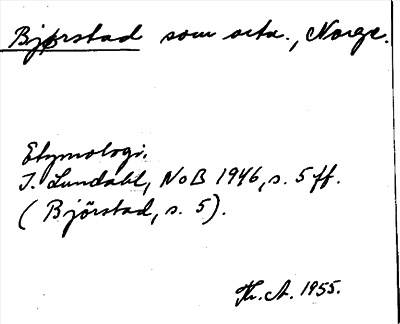 Bjørstad som ortn., Norge.
Etymologi.
I. Lundahl, NoB 1946, s. 5 ff.
(Bjőrstad, s. 5).
Hr. A. 1955.